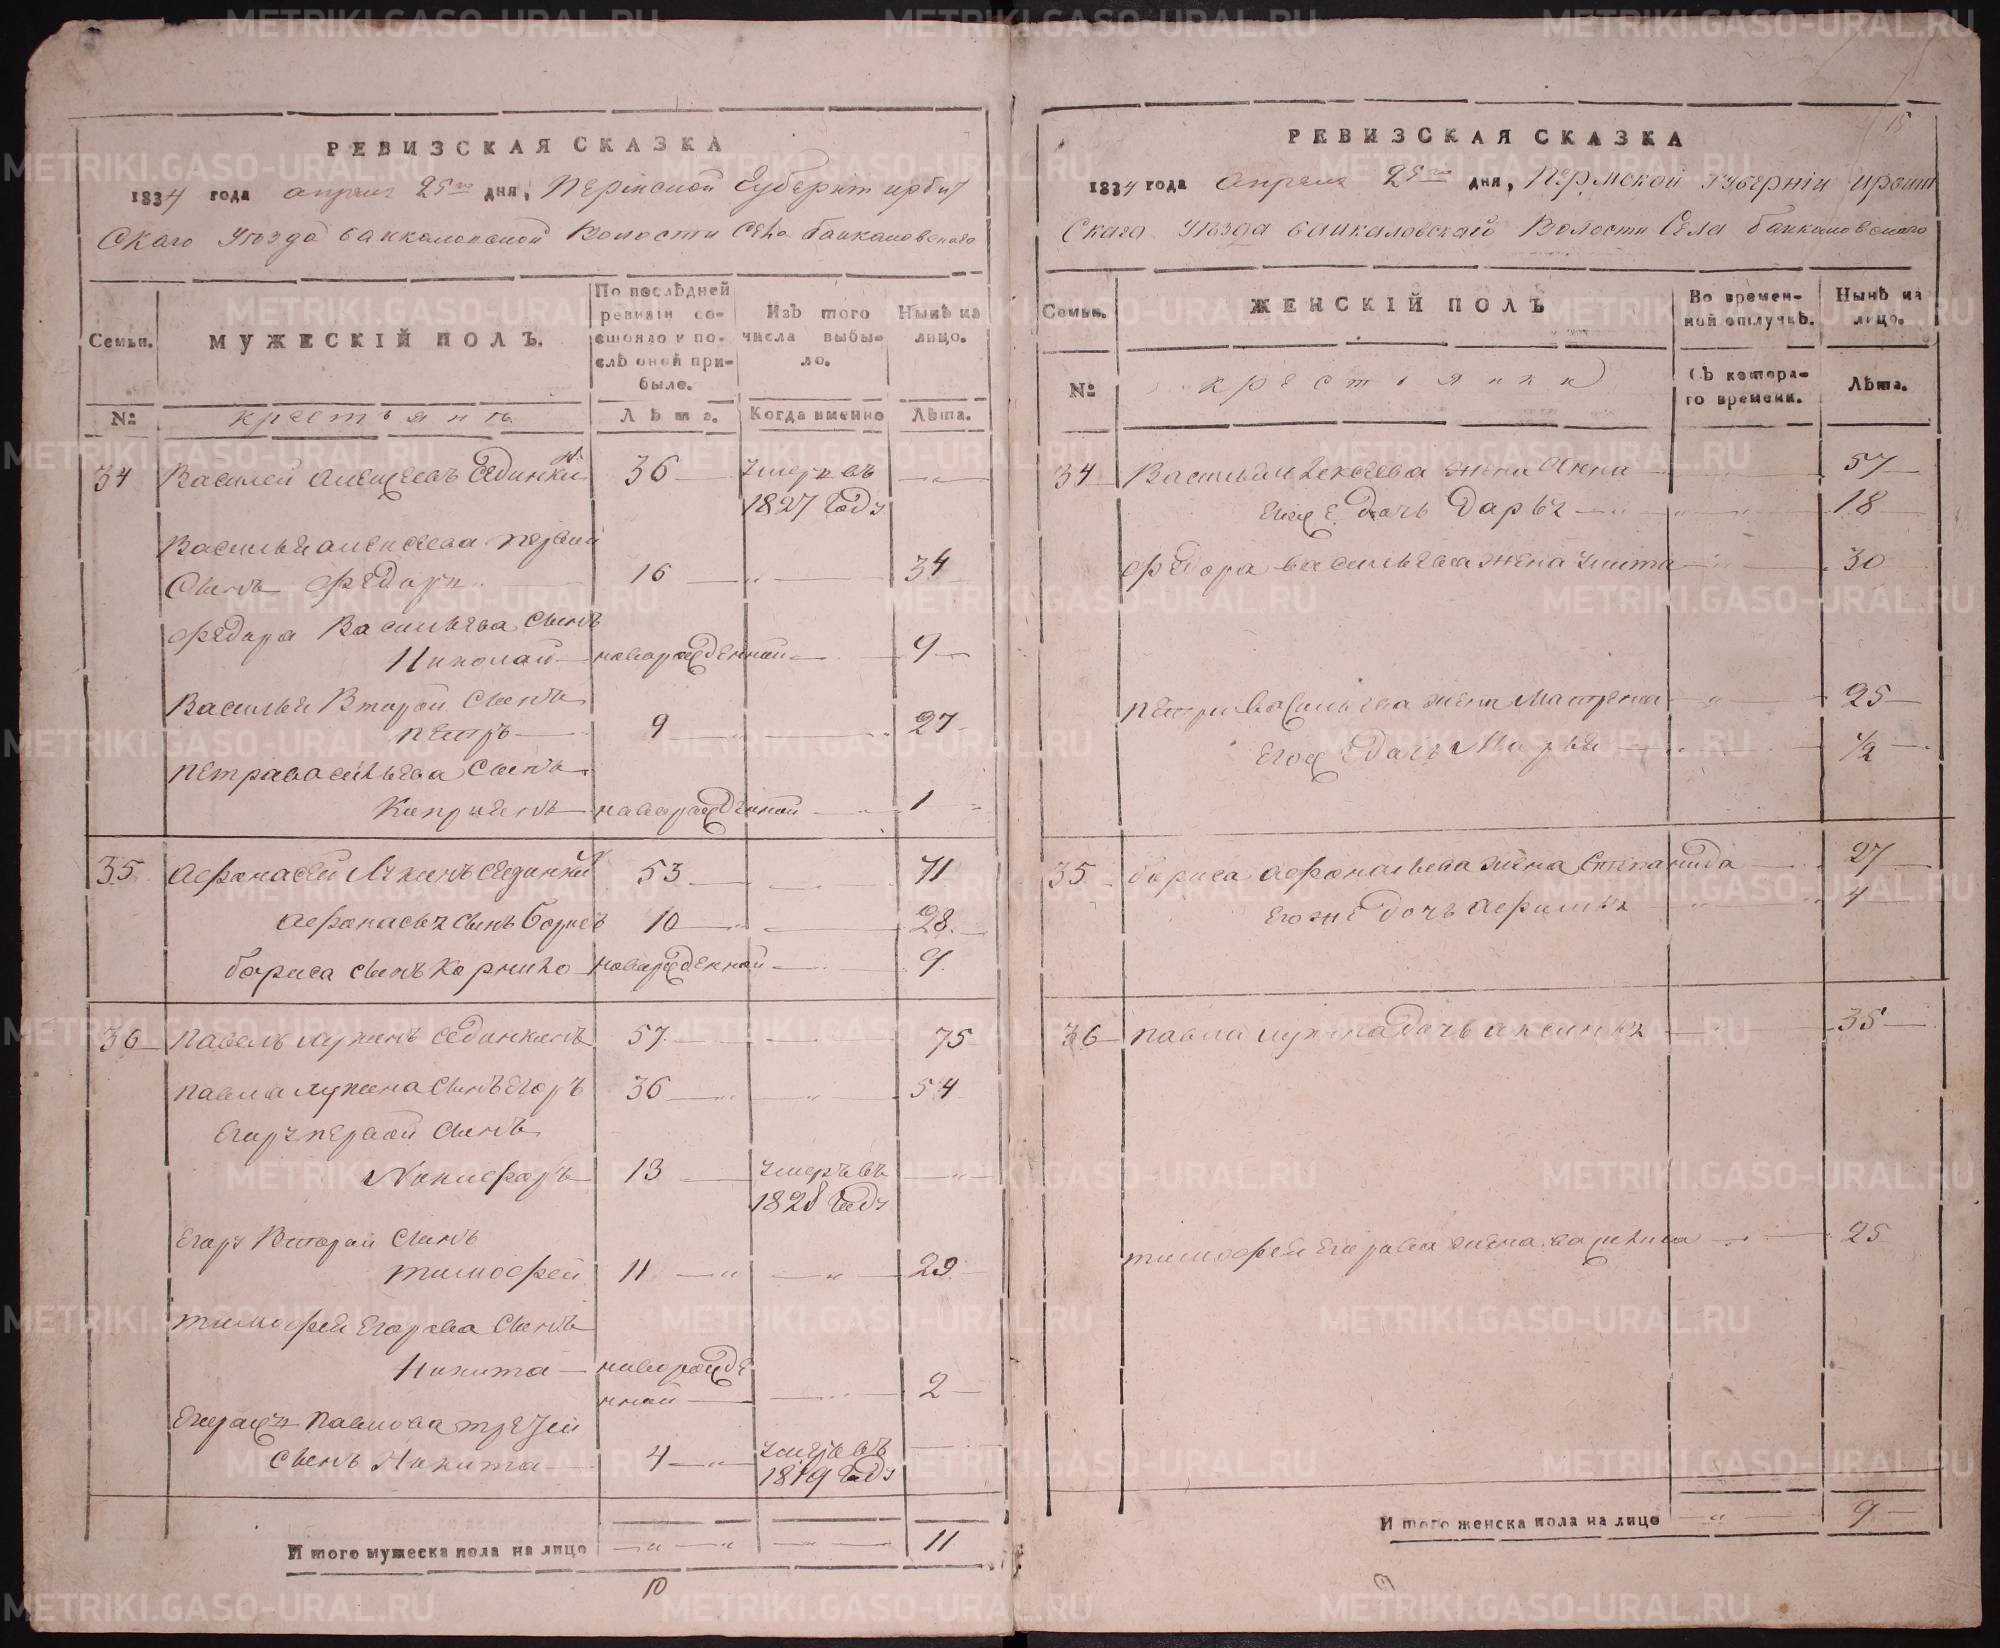 РЕВИЗСКАЯ СКАЗКА
1834 года апреля 25го дня, Пермской Губернiи ирбит
Скаго уезда баикаловской Волости Села баикаловскаго
Семьи.
МУЖЕСКІЙ ПОЛЪ.
По послѣдней ревизіи состояло и послѣ оной прибыло.
Изъ того числа выбыло.
Нынѣ на лицо.
№
крестьянъ
Лѣта.
Когда именно
Лѣта.
34 Василей алексеевъ Сединкин 36 умеръ въ
1827 Году
Василья алексеева первый
Сынъ Федоръ 16 34
Федора Васильева Сынъ
Николай новорожденной 9
Василья Второй Сынъ
петръ 9 27
петра васильева Сынъ
Киприянъ новорожденной 1
35 Афонасей Лукинъ Сединкин 53 71
афонасья сынъ борисъ 10 28
бориса сынъ Корнило новорожденной 9
36 павелъ лукинъ Сединкинъ 57 75
павла лукина сынъ егоръ 36 54
Егора первой Сынъ
Никифоръ 13 умеръ въ
1828 Году
Егора Второй Сынъ
тимофей 11 29
тимофея Егорова Сынъ
Никита новорожде
нной 2
Павлова третей
Сынъ Никита 4 умеръ въ
1819 Году
Итого мужеска пола на лицо 11
10
15
РЕВИЗСКАЯ СКАЗКА
1834 года апреля 25го дня, Пермской губерніи ирбит
Скаго уезда баикаловской Волости Села баикаловскаго
Семьи.
ЖЕНСКІЙ ПОЛЪ
Во временной отлучкѣ.
Нынѣ на лицо.
№
крестьянки
Съ котораго времени.
Лѣта.
34 Василья алексеева жена Анна 57
Егоже дочь Дарья 18
Федора васильева жена 30
петра васильева жена Матрена 25
Егоже дочь Марья 1/2
35 бориса афонасьева жена Степанида 27
Егоже дочь 4
36 павла лукина дочь аксинья 35
тимофея Егорова жена 25
Итого женска пола на лицо 9
METRIKI.GASO-URAL.RU